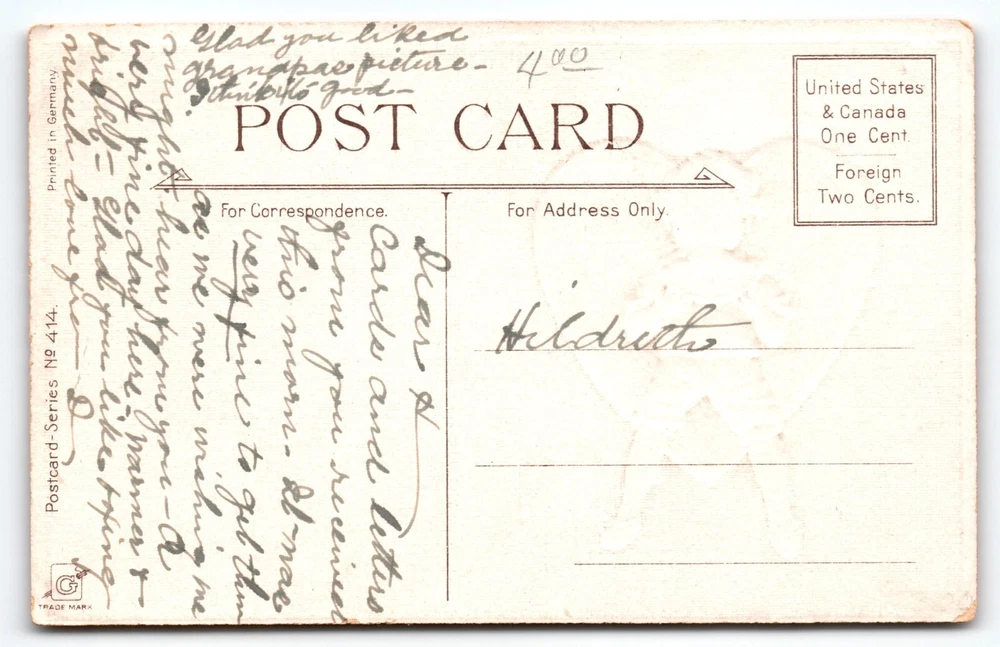 Glad you liked
grandpas picture -
I think its good -
4.00
POST CARD
United States
& Canada
One Cent.
Foreign
Two Cents.
For Correspondence.
For Address Only.
Dear H
Cards and letters
from you received
this morn. It was
very fine to get them
as we were wishing we
might hear from you - A
very fine day here - warmer &
bright - Glad you like
much love from D
Hildreth
Printed in Germany
Postcard-Series No 414.
G
TRADE MARK